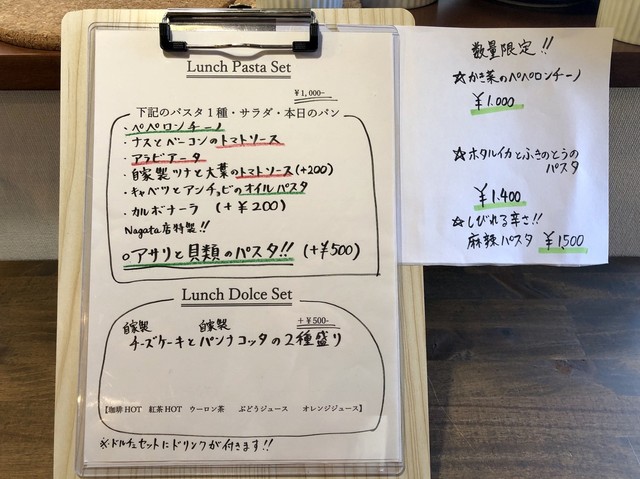 Lunch Pasta Set
￥1,000-
下記のパスタ1種・サラダ・本日のパン
・ペペロンチーノ
・ナスとベーコンのトマトソース
・アラビアータ
・自家製ツナと大葉のトマトソース(+200)
・キャベツとアンチョビのオイルパスタ
・カルボナーラ (+￥200)
Nagata店特製!!
○アサリと貝類のパスタ!! (+￥500)
Lunch Dolce Set
+￥500-
自家製 自家製
チーズケーキとパンナコッタの2種盛り
【珈琲HOT 紅茶HOT ウーロン茶 ぶどうジュース オレンジジュース】
※ドルチェセットにドリンクが付きます!!
数量限定!!
☆かき菜のペペロンチーノ
￥1.000
☆ホタルイカとふきのとうの
パスタ
￥1.400
☆しびれる辛さ!!
麻辣パスタ ￥1,500